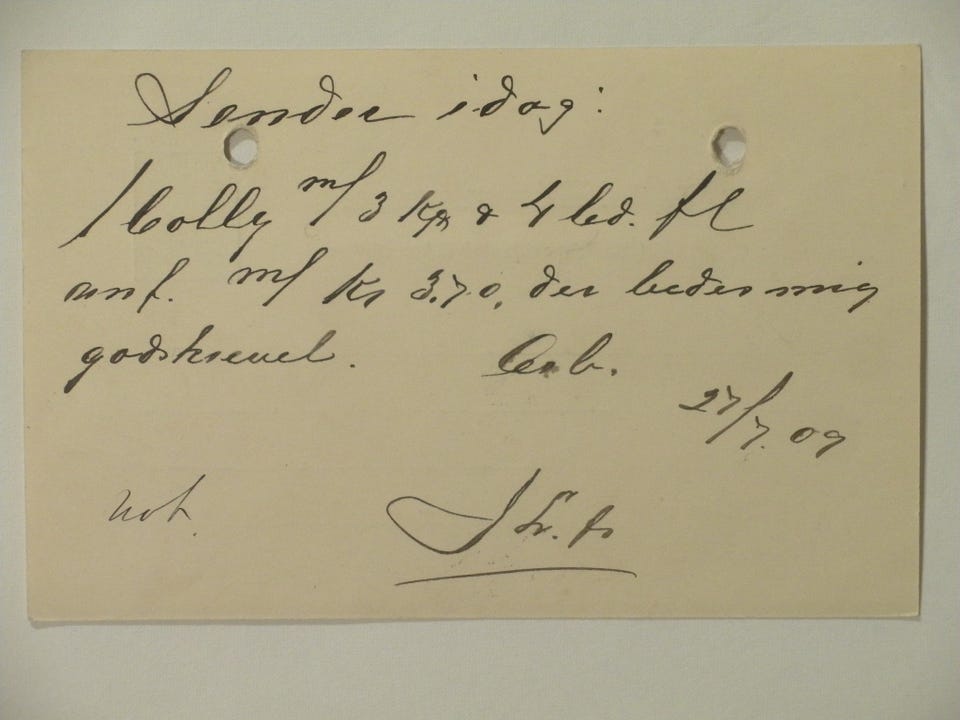 Sender idag:
1 Colly m/ 3 Kgr & 4 led. fl
anf. m/ Kr 3.70, der bedes mig
godskrevet. Erb.
27/7. 09
not.